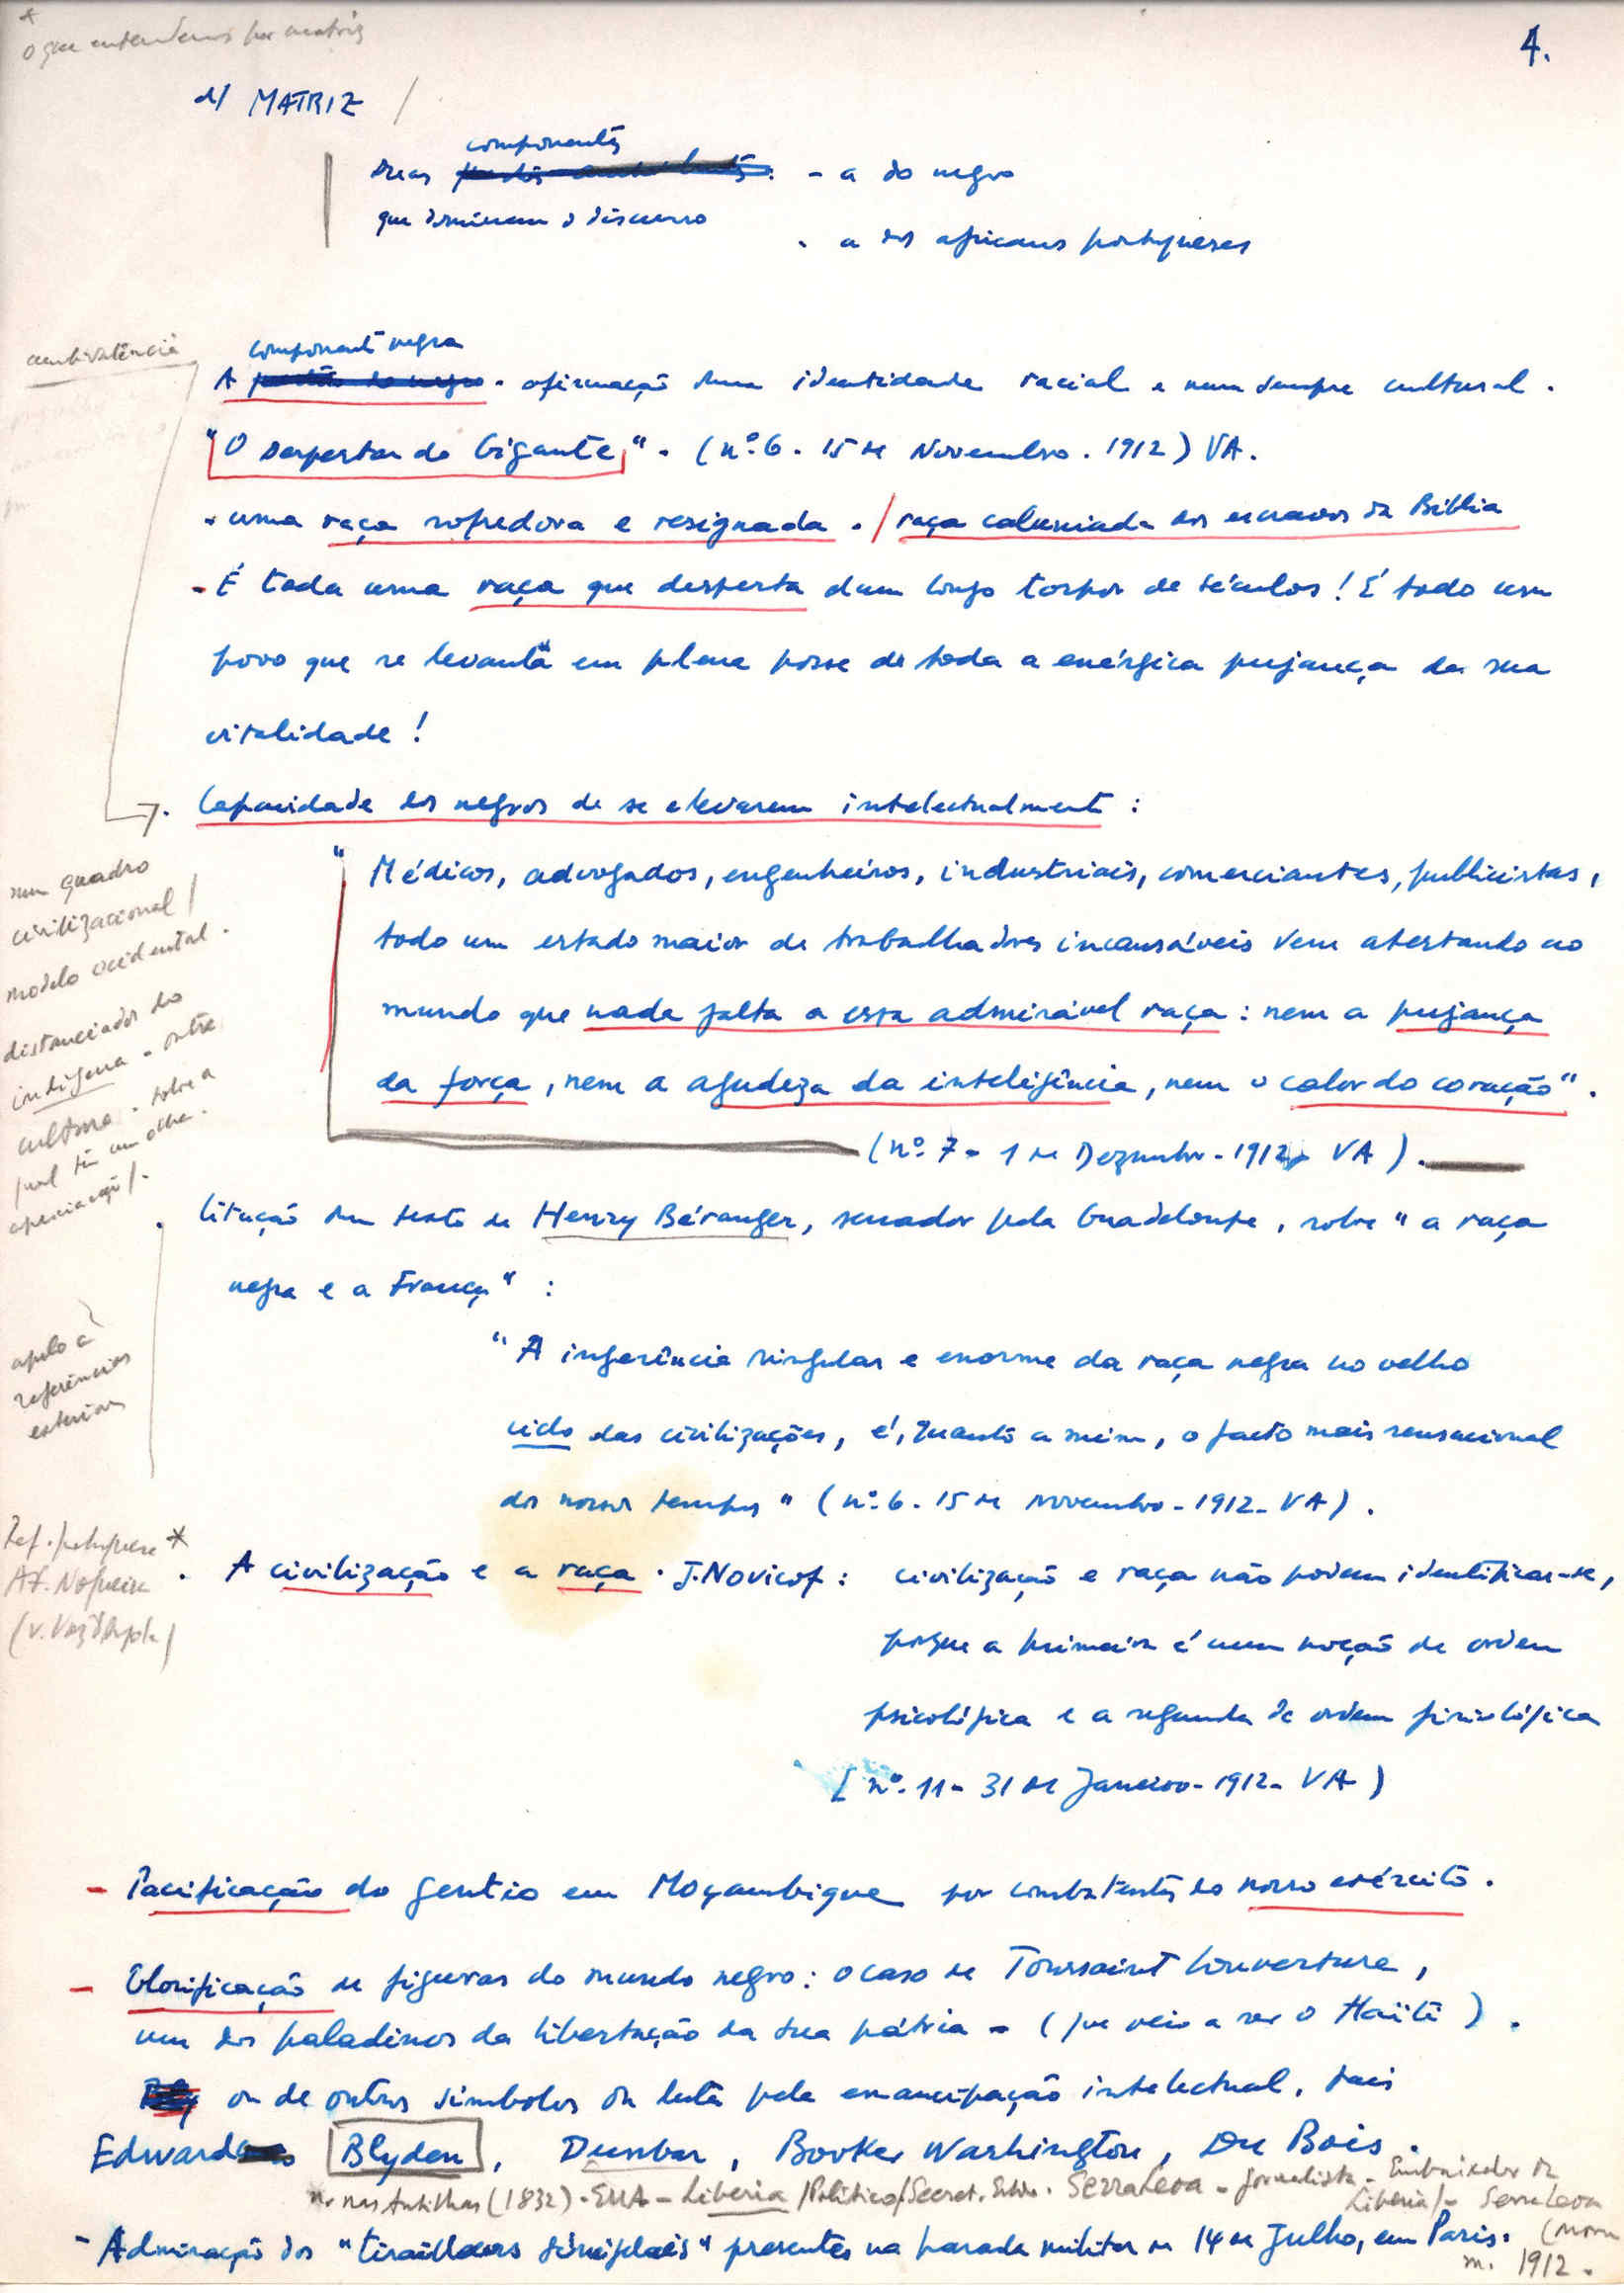 *
o que entendemos por matriz
4.
d/ MATRIZ /
componentes
duas - a do negro
que dominam o discurso
. a dos africanos portugueses
ambivalência
componente negra
A . afirmação duma identidade racial e nem sempre cultural.
"O Despertar do Gigante". (nº 6. 15 de Novembro. 1912) VA.
. uma raça sofredora e resignada. / raça caluniada dos escravos da Bíblia
- É toda uma raça que desperta dum longo torpor de séculos! É todo um
povo que se levanta em plena posse de toda a enérgica pujança da sua
vitalidade!
. Capacidade dos negros de se elevarem intelectualmente :
" Médicos, advogados, engenheiros, industriais, comerciantes, publicistas,
todo um estado maior de trabalhadores incansáveis vem atestando ao
mundo que nada falta a essa admirável raça : nem a pujança
da força, nem a agudeza da inteligência, nem o calor do coração".
(nº 7 - 1 de Dezembro - 1912 - VA).
num quadro
civilizacional /
modelo ocidental.
distanciador do
indígena - outra
cultura - sobre a
qual têm um olhar.
apreciação/.
. Citação dum texto de Henry Béranger, senador pela Guadeloupe, sobre "a raça
negra e a França" :
apelo a
referências
exteriores
"A ingerência singular e enorme da raça negra no velho
ciclo das civilizações, é, quanto a mim, o facto mais sensacional
dos nossos tempos" (nº 6. 15 de Novembro - 1912 - VA).
Ref. portuguesa *
Af. Nogueira
. A civilização e a raça . J. Novicof : civilização e raça não podem identificar-se,
porque a primeira é uma noção de ordem
psicológica e a segunda de ordem fisiológica
(nº 11 - 31 de Janeiro - 1912 - VA)
- Pacificação do gentio em Moçambique por combatentes do nosso exército.
- Glorificação de figuras do mundo negro : o caso de Toussaint Louverture,
um dos paladinos da libertação da sua pátria - (que veio a ser o Haïti).
ou de outros símbolos da luta pela emancipação intelectual, tais
Edward Blyden, Dunbar, Booker Washington, Du Bois.
n. nas Antilhas (1832). EUA - Liberia /Político/Secret. Estado. Serra Leoa - jornalista - Embaixador da
Liberia/- Serra Leoa
- Admiração dos "tirailleurs sénégalais" presentes na parada militar de 14 de Julho, em Paris.
m. 1912.